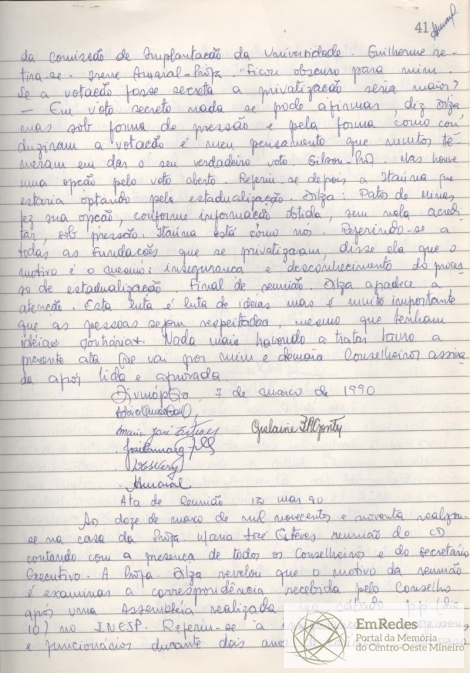 41
da Comissão de Implantação da Universidade. Guilherme re-
tira-se. Irene Amaral - Profa. "Ficou obscuro para mim.
Se a votação fosse secreta a privatização seria maior?
— Em voto secreto nada se pode afirmar, diz Ilza
mas sob forma de pressão e pela forma como con
duziram a votação é meu pensamento que muitos te
meram em dar o seu verdadeiro voto. Gilson - Não houve
uma opção pelo voto aberto. Referiu-se depois a Itaúna que
estaria optando pela estadualização. Ilza: Patos de Minas
fez sua opção, conforme informação obtida, sem nela acredi
tar, sob pressão. Itaúna está como nós. Referindo-se a
todas as Fundações que se privatizaram, disse ela que o
motivo é o mesmo: insegurança e desconhecimento do proces
so de estadualização. Final de reunião. Ilza agradece a
atenção. Esta luta é luta de ideias mas é muito importante
que as pessoas sejam respeitadas, mesmo que tenham
idéias contrárias. Nada mais havendo a tratar lavro a
presente ata que vai por mim e demais Conselheiros assina
da após lida e aprovada
Divinópolis, 7 de março de 1990
Maria José Esteves
Amaral
Ata de Reunião 12 mar 90
Ao doze de março de mil novecentos e noventa realizou
se na casa da Profa. Maria José Esteves reunião do CD
contando com a presença de todos os Conselheiros e do Secretário
Executivo. A Profa. Ilza revelou que o motivo da reunião
é examinar a correspondência recebida pelo Conselho
após uma Assembleia realizada no sábado p.p. (dia
10) no INESP. Referiu-se a
e funcionários durante dois anos
EmRedes
Portal da Memória
do Centro-Oeste Mineiro